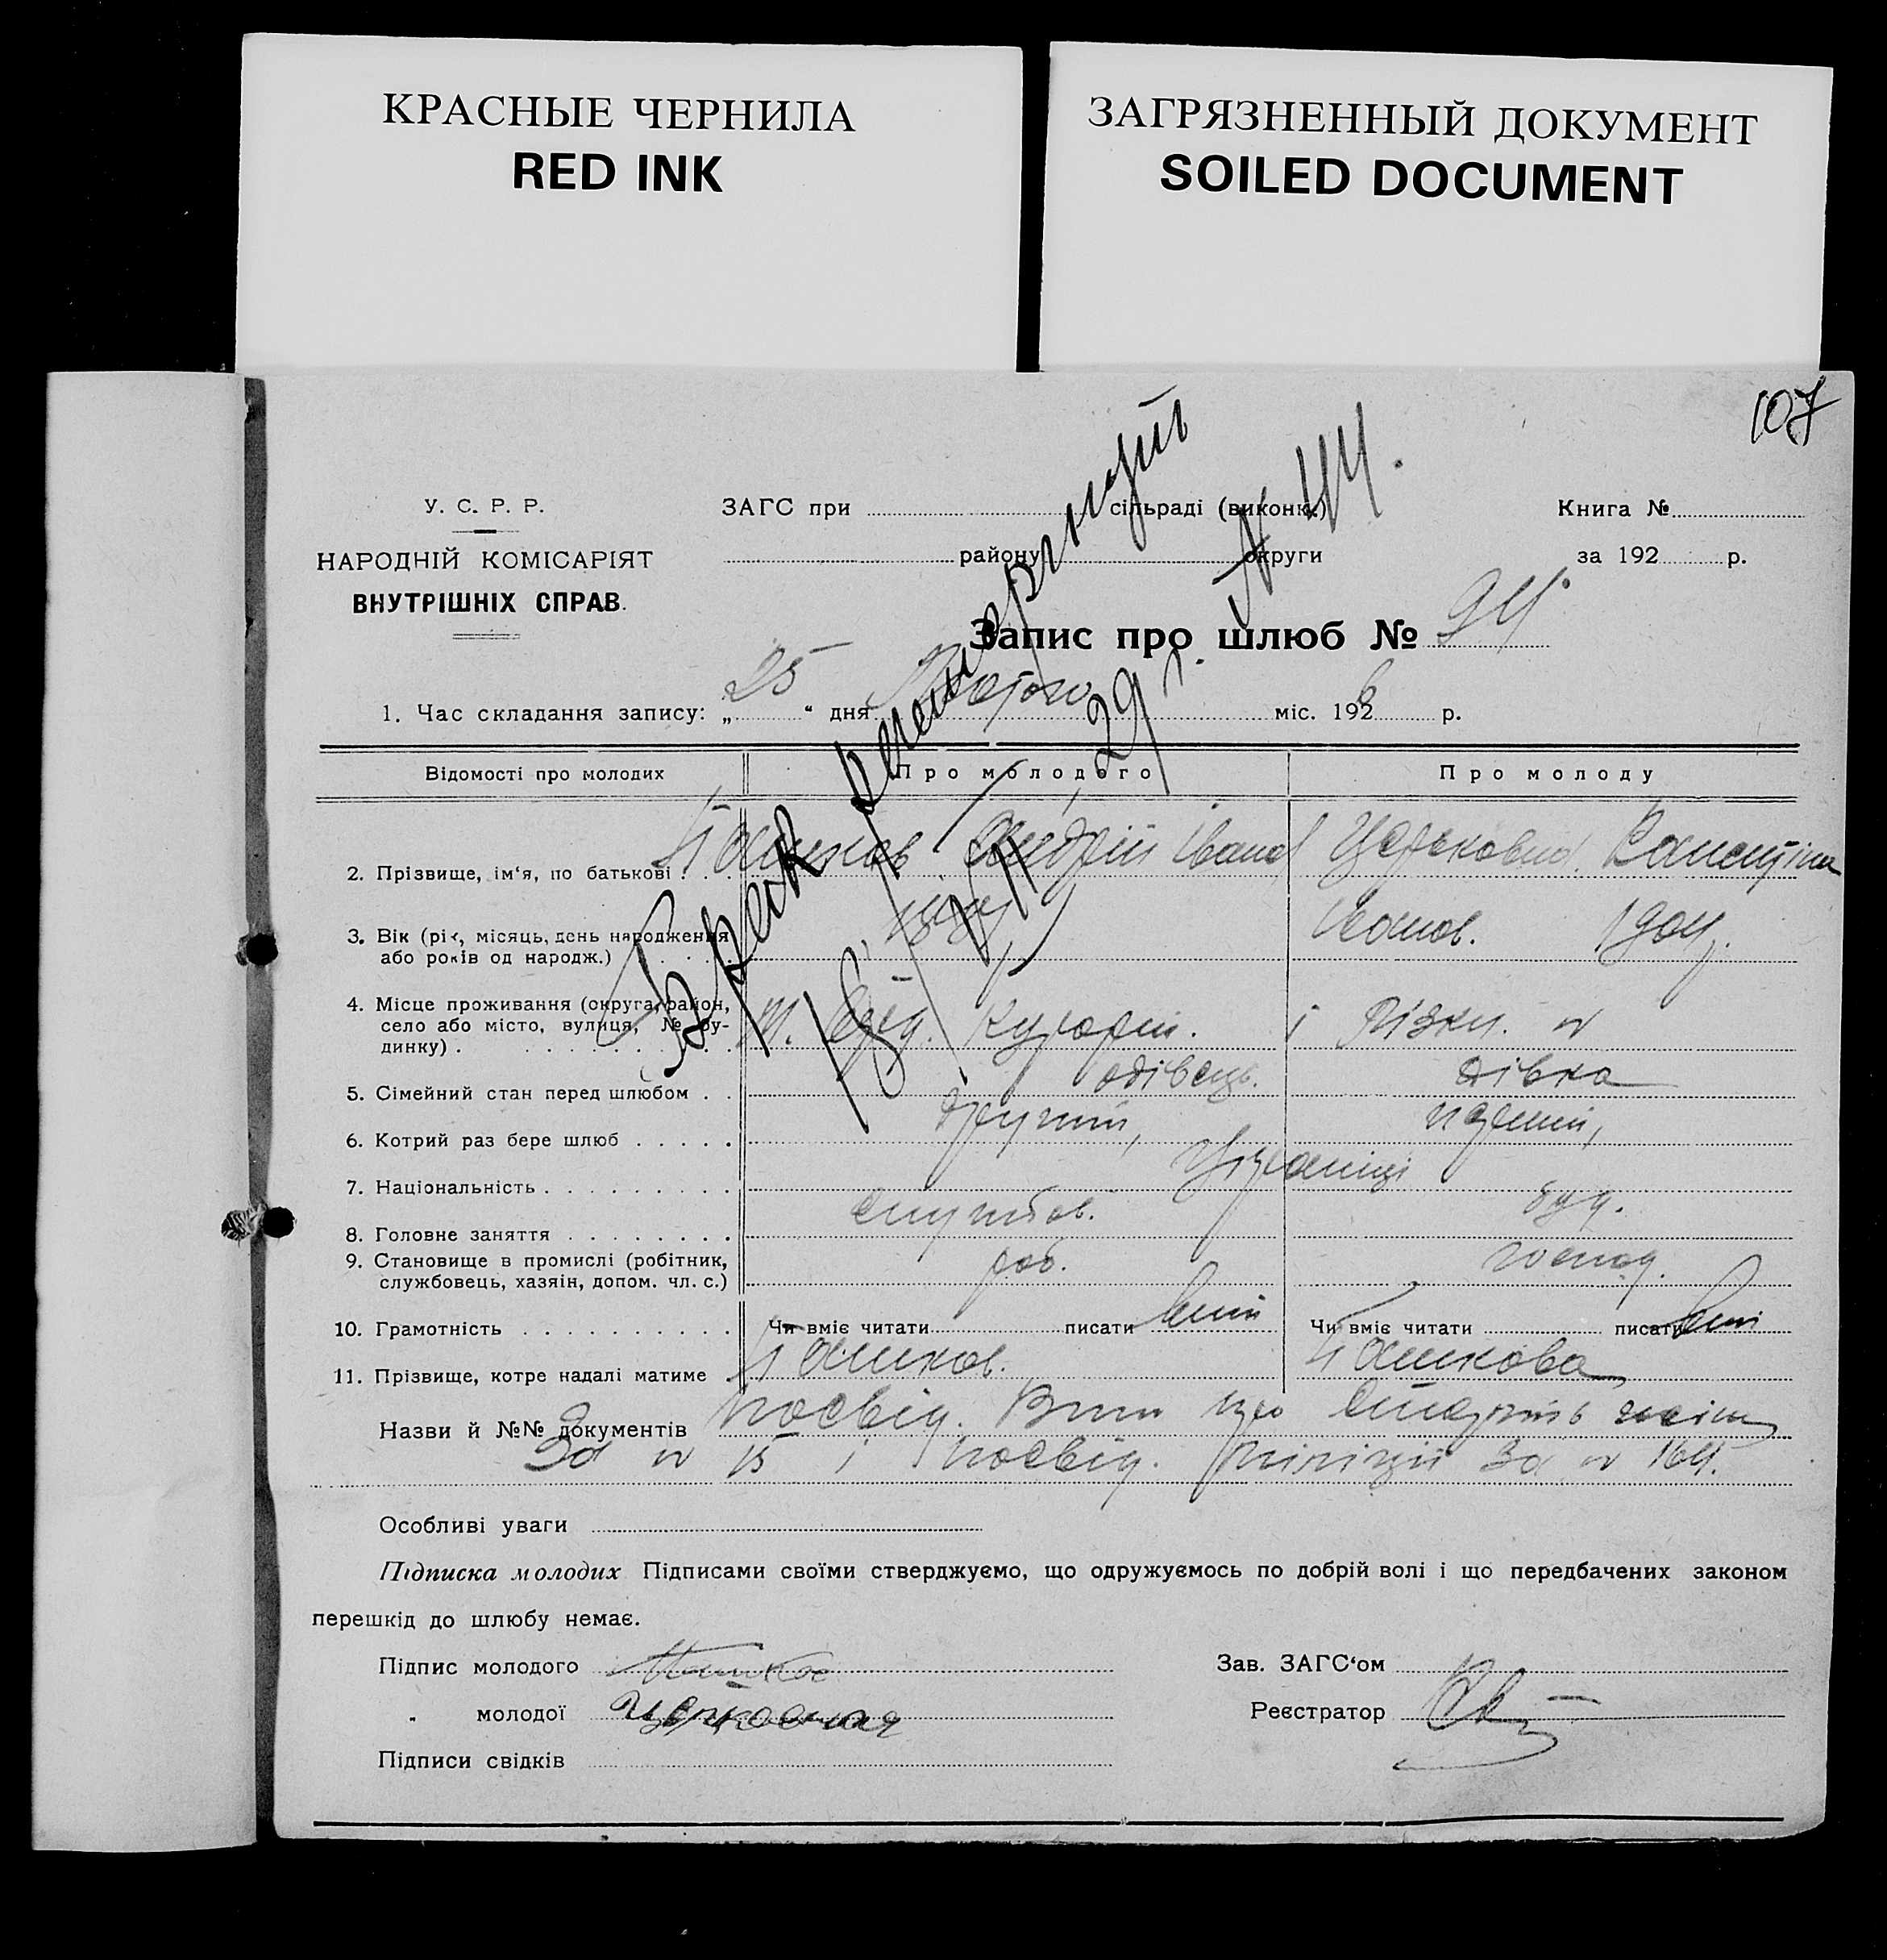 КРАСНЫЕ ЧЕРНИЛА
RED INK
ЗАГРЯЗНЕННЫЙ ДОКУМЕНТ
SOILED DOCUMENT
107
У. С. Р. Р.
НАРОДНІЙ КОМІСАРІЯТ
ВНУТРІШНІХ СПРАВ.
ЗАГС при сільраді (виконк.)
району округи
Книга №
за 192 р.
Брак
№ 44.
29 г.
Запис про шлюб № 94.
1. Час складання запису: „25“ дня Лютого міс. 1926 р.
Відомості про молодих Про молодого Про молоду
2. Прізвище, ім‘я, по батькові . . . Пашков Андрій Іванов Церковна Валентіна
3. Вік (рік, місяць, день народження Іванов. 1904.
або років од народж.)
4. Місце проживання (округа, район,
село або місто, вулиця, № бу-
динку) .
5. Сімейний стан перед шлюбом . . одівець. дівка
6. Котрий раз бере шлюб . . . . . другий, перший,
7. Національність . . . . . . . . . Українці
8. Головне заняття . . . . . . . . службов.
9. Становище в промислі (робітник, роб. господ.
службовець, хазяін, допом. чл. с.)
10. Грамотність . . . . . . . . . . Чи вміє читати писати вміє Чи вміє читати писати вміє
11. Прізвище, котре надалі матиме . Пашков. Пашкова
Назви й №№ документів посвід.
за № 15 і посвід. міліції за № 164.
Особливі уваги
Підписка молодих Підписами своїми стверджуємо, що одружуємось по добрій волі і що передбачених законом
перешкід до шлюбу немає.
Підпис молодого Пашков
„ молодої Церковная
Підписи свідків
Зав. ЗАГС‘ом
Реєстратор